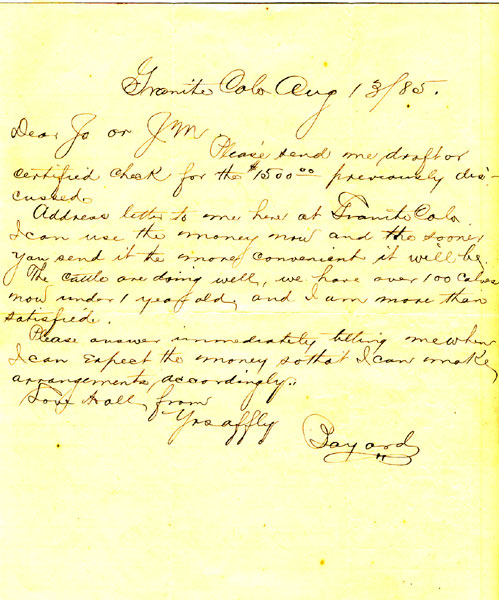 Granite Colo Aug 13/85.
Dear Jo or JM
Please send me draft or
certified check for the $1500.00 previously dis-
cussed.
Address letter to me here at Granite Colo.
I can use the money now and the sooner
you send it the more convenient it will be.
The cattle are doing well, we have over 100 calves
now under 1 year old, and I am more than
satisfied.
Please answer immediately telling me when
I can expect the money so that I can make
arrangements, accordingly.
Love to all, from
Yrs affly
Bayard